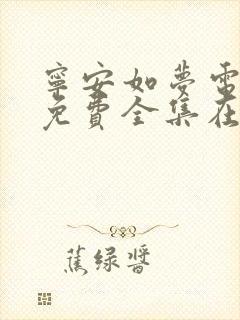 寧安如夢電
免費全集在
蕉绿醬